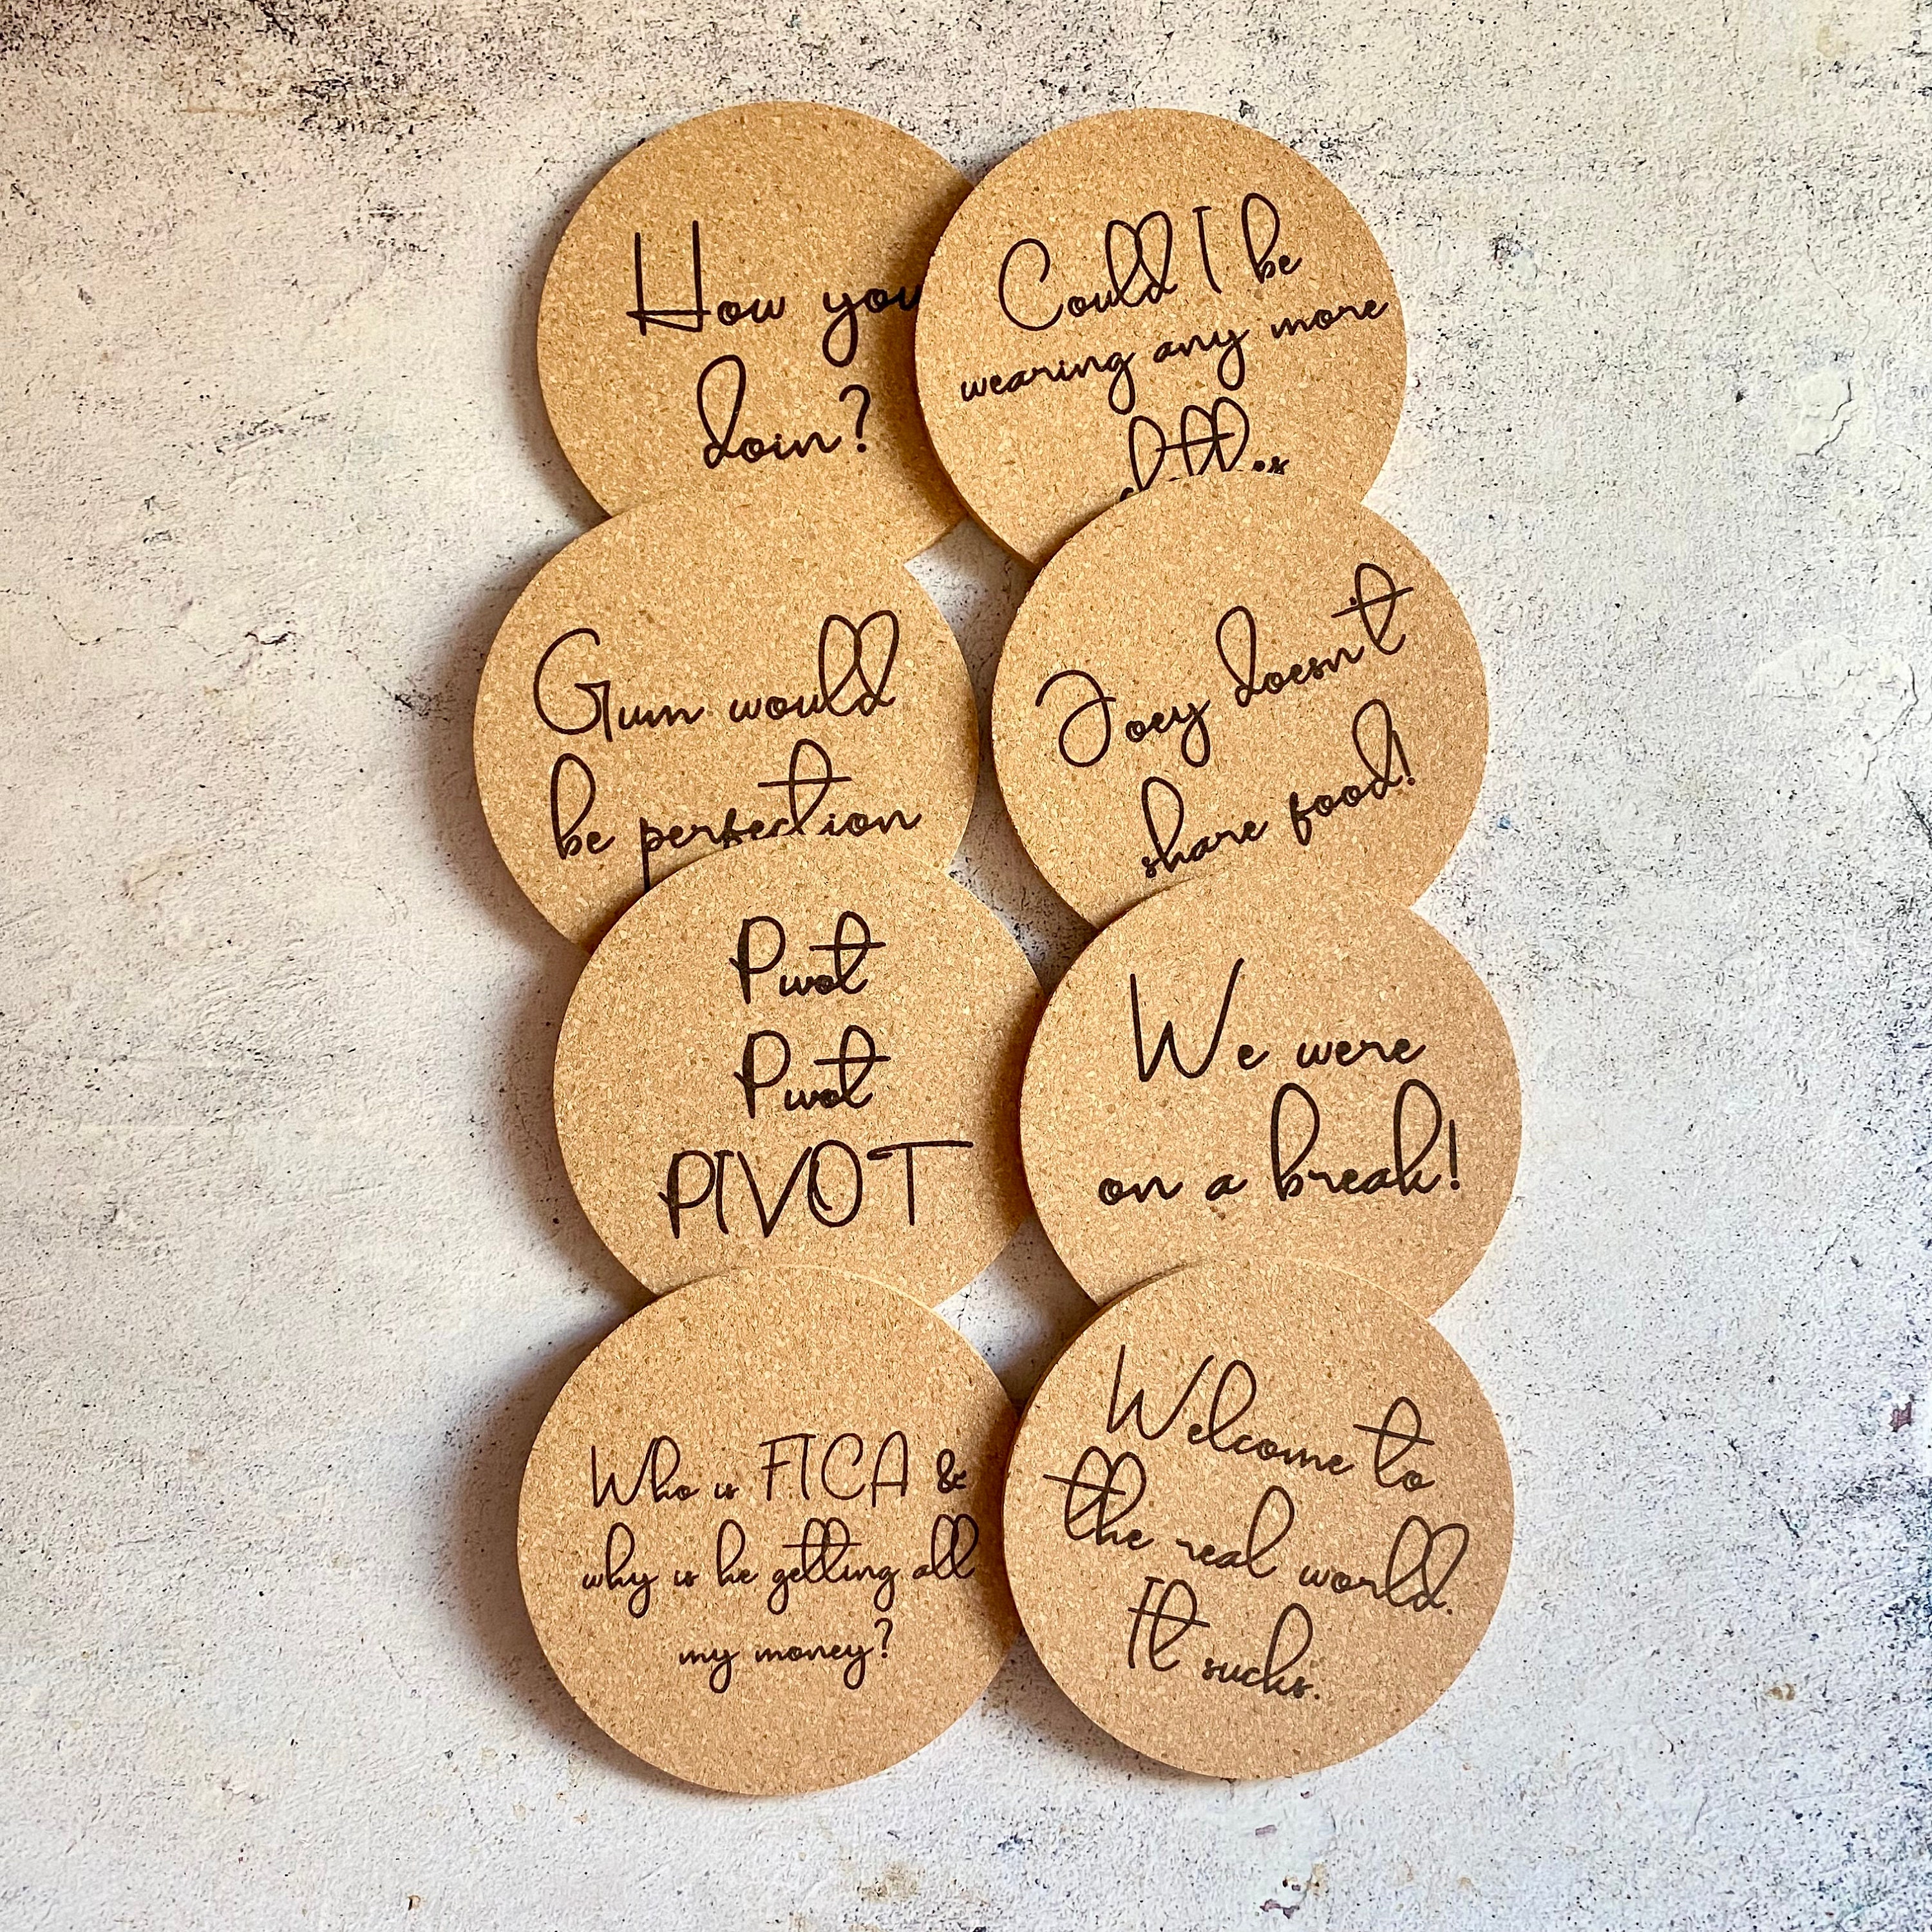 How you
doin?
Could I be
wearing any more
clothes
Gum would
be perfection
Joey doesn't
share food!
Pivot
Pivot
PIVOT
We were
on a break!
Who is FICA &
why is he getting all
my money?
Welcome to
the real world.
It sucks.